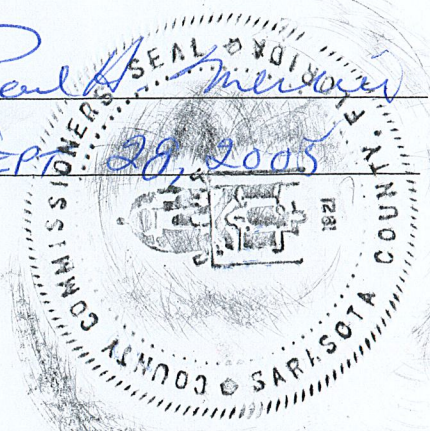 Paul H.
SEPT 28, 2005
COUNTY COMMISSIONERS SEAL
SARASOTA COUNTY, FLORIDA
1921